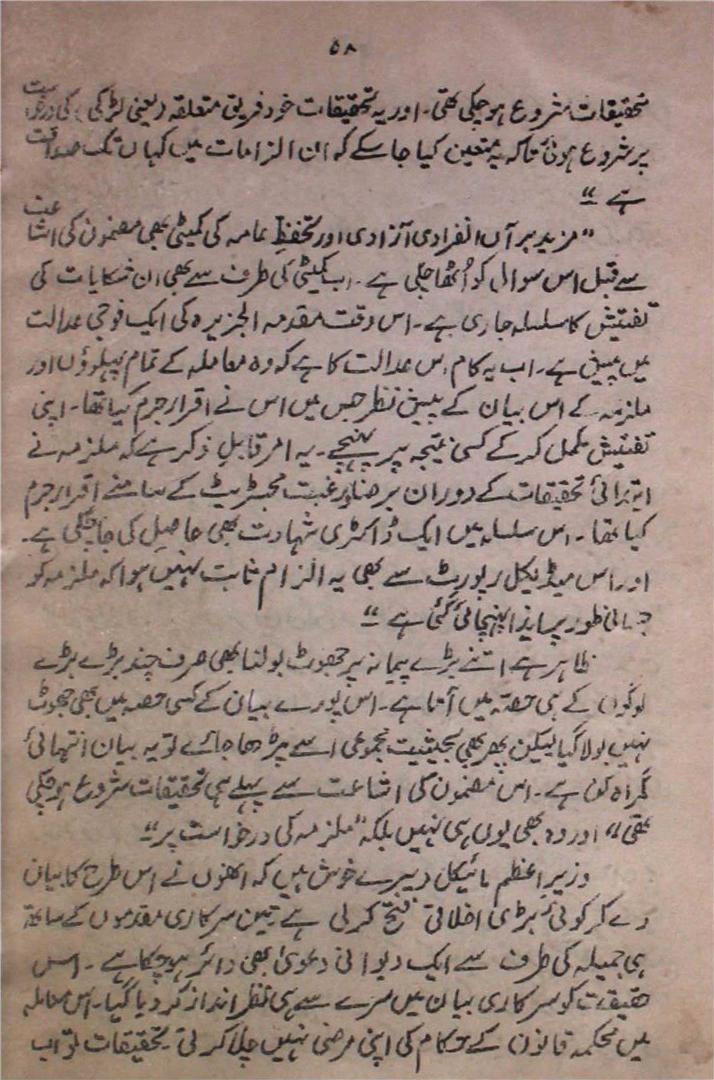 ۵۸
تحقیقات شروع ہو چکی تھی۔ اور یہ تحقیقات خود فریق متعلقہ (یعنی لڑکی) کی درخواست
پر شروع ہوئی تاکہ یہ متعین کیا جا سکے کہ ان الزامات میں کہاں تک صداقت
ہے“
”مزید برآں انفرادی آزادی اور تحفظِ عامہ کی کمیٹی بھی مضمون کی اشاعت
سے قبل اس سوال کو اُٹھا چکی ہے۔ اب کمیٹی کی طرف سے بھی ان شکایات کی
تفتیش کا سلسلہ جاری ہے۔ اس وقت مقدمہ الجزیرہ کی ایک فوجی عدالت
میں پیش ہے۔ اب یہ کام اس عدالت کا ہے کہ وہ معاملہ کے تمام پہلوؤں اور
ملزمہ کے اس بیان کے پیش نظر جس میں اس نے اقرار جرم کیا تھا۔ اپنی
تفتیش مکمل کر کے کسی نتیجہ پر پہنچے۔ یہ امر قابلِ ذکر ہے کہ ملزمہ نے
ابتدائی تحقیقات کے دوران برضا و رغبت مجسٹریٹ کے سامنے اقرار جرم
کیا تھا۔ اس سلسلہ میں ایک ڈاکٹری شہادت بھی حاصل کی جا چکی ہے۔
اور اس میڈیکل رپورٹ سے بھی یہ الزام ثابت نہیں ہوا کہ ملزمہ کو
جسمانی طور پر ایذا پہنچائی گئی ہے“
ظاہر ہے اتنے بڑے پیمانہ پر جھوٹ بولنا بھی صرف چند بڑے بڑے
لوگوں کے ہی حصّہ میں آتا ہے۔ اس پورے بیان کے کسی حصہ میں بھی جھوٹ
نہیں بولا گیا لیکن پھر بھی بحیثیت مجموعی اسے پڑھا جائے تو یہ بیان انتہائی
گمراہ کن ہے۔ اس مضمون کی اشاعت سے پہلے ہی تحقیقات شروع ہو چکی
تھی“ اور وہ بھی یوں ہی نہیں بلکہ ”ملزمہ کی درخواست پر“
وزیر اعظم مائیکل دیبرے خوش ہیں کہ انھوں نے اس طرح کا بیان
دے کر کوئی بڑی اخلاقی فتح کر لی ہے تین سرکاری مقدموں کے ساتھ
ہی جمیلہ کی طرف سے ایک دیوانی دعویٰ بھی دائر ہو چکا ہے۔ اس
حقیقت کو سرکاری بیان میں سرے سے ہی نظر انداز کر دیا گیا۔ اس معاملہ
میں محکمہ قانون کے حکام کی اپنی مرضی نہیں چلا کرتی تحقیقات تو اب